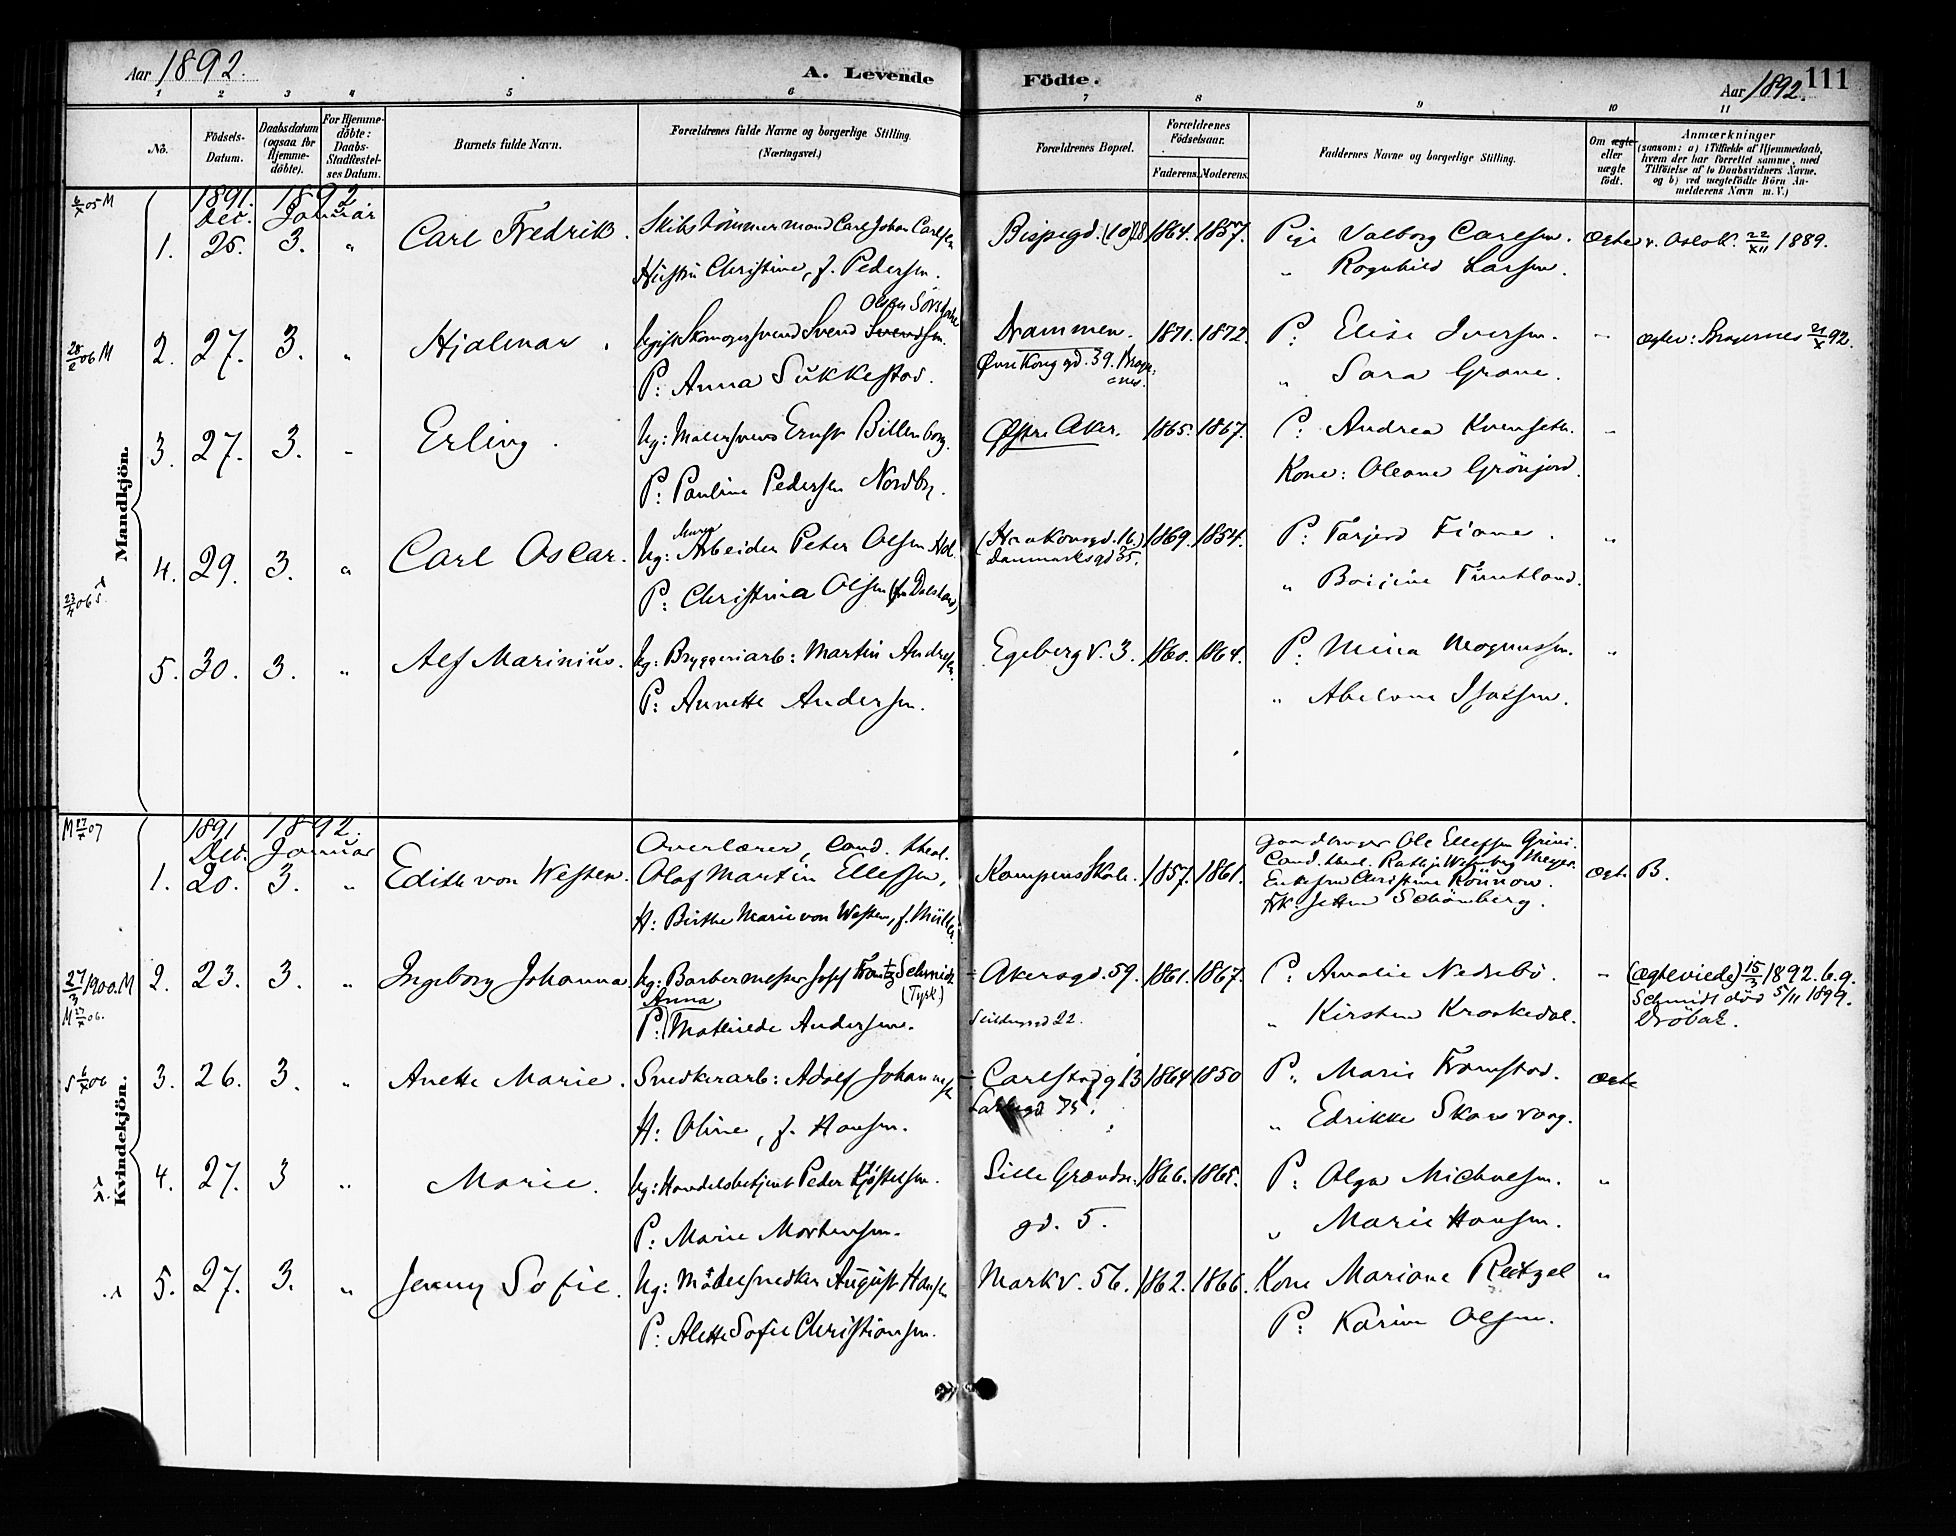 Aar 1892.
A. Levende Födte.
Aar 1892. 111
1 2 3 4 5 6 7 8 9 10 11
No.
Födsels-Datum.
Daabsdatum (ogsaa for Hjemme-döbte).
For Hjemme-döbte: Daabs-Stadfæstel-ses Datum.
Barnets fulde Navn.
Forældrenes fulde Navne og borgerlige Stilling. (Næringsvei.)
Forældrenes Bopæl.
Forældrenes Födselsaar.
Faderens. Moderens.
Faddernes Navne og borgerlige Stilling.
Om ægte eller uægte födt.
Anmærkninger
(saasom: a) i Tilfælde af Hjemmedaab, hvem der har forrettet samme, med Tilföielse af to Daabsvidners Navne, og b) ved uægtefödte Börn An-melderens Navn m. V.)
Mandkjön.
1891. 1892.
Dec. Januar
6/X 05 M 1. 25. 3. " Carl Fredrik. Skibstömmermand Carl Johan Carlsen Bispegd. (10) 28 1864. 1857. Pige Valborg Carlsen. Ægte v. Oslo K. 22/XII 1889.
Hustru Christine, f. Pedersen. " Ragnhild Larsen.
Olsen Sörsdahl
M 2. 27. 3. " Hjalmar. Skomagersvend Svend Svendsen. Drammen. 1871. 1872. P: Elise Iversen. " ægtev: Bragernes 21/X 92.
P: Anna Sukkestad. Övre Kong gd. 39. Brager-nes. " Sara Grane.
3. 27. 3. " Erling. Ug: Malersvend Ernst Billenborg. Østre Aker. 1865. 1867. P: Andrea Kvenseth. "
P: Pauline Pedersen Nordby. Kone: Oleane Grönjord.
4. 29. 3. " Carl Oscar. Ug: Arbeider Peter Olsen Danmarksgd 35. 1869. 1854. P: Tarjerd Fiane. "
P: Christina Olsen (fra Dalsland)
5. 30. 3. " Alf Marinius. Ug: Bryggeriarb: Martin Andresen. Egeberg V. 3. 1860. 1864. P: Mina Magnussen. "
P: Annette Andersen. " Abelone Isaksen.
Kvindekjön.
1891 1892.
Dec. Januar
Overlærer, Cand. theol. Gaardbruger Ole Ellefsen Grini.
1. 20. 3. " Edith von Westen. Olaf Martin Ellefsen, Kampens Skole. 1857. 1861. Ægte B.
H: Birthe Marie von Westen, f. Müller. Enkefru Christine Rönnow.
Schömberg.
27/3 1900. M 2. 23. 3. " Ingeborg Johanna Ug: Barbermester Josef Frantz Schmidt (Tysk) Akersgd. 59. 1861. 1867. P: Amalie Nedrebö. " (Ægteviede) 15/3 1892. b. 9.
Anna
P: Mathilde Andersen. 22. " Kirsten Krookedal. Schmidt död 5/11 1899. Dröbak.
S 6/X 06 3. 26. 3. " Anette Marie. Snedkerarb: Adolf Johannesen Carlstadg 13 1864 1850 P: Marie Framstad. ægte
H: Oline, f. Hansen. " Edrikke Skarsvaag.
4. 27. 3 " Marie. Ug: Handelsbetjent Peder Kjöstelsen. Lille Grændse- 1866. 1865. P: Olga Michaelsen. "
P: Marie Mortensen. gd. 5. " Marie Hansen.
5. 27. 3. " Jenny Sofie. Ug: Möbelsnedker August Hansen Markv. 56. 1862. 1866. Kone Mariane Reitzel "
P: Alette Sofie Christiansen. P: Karine Olsen.